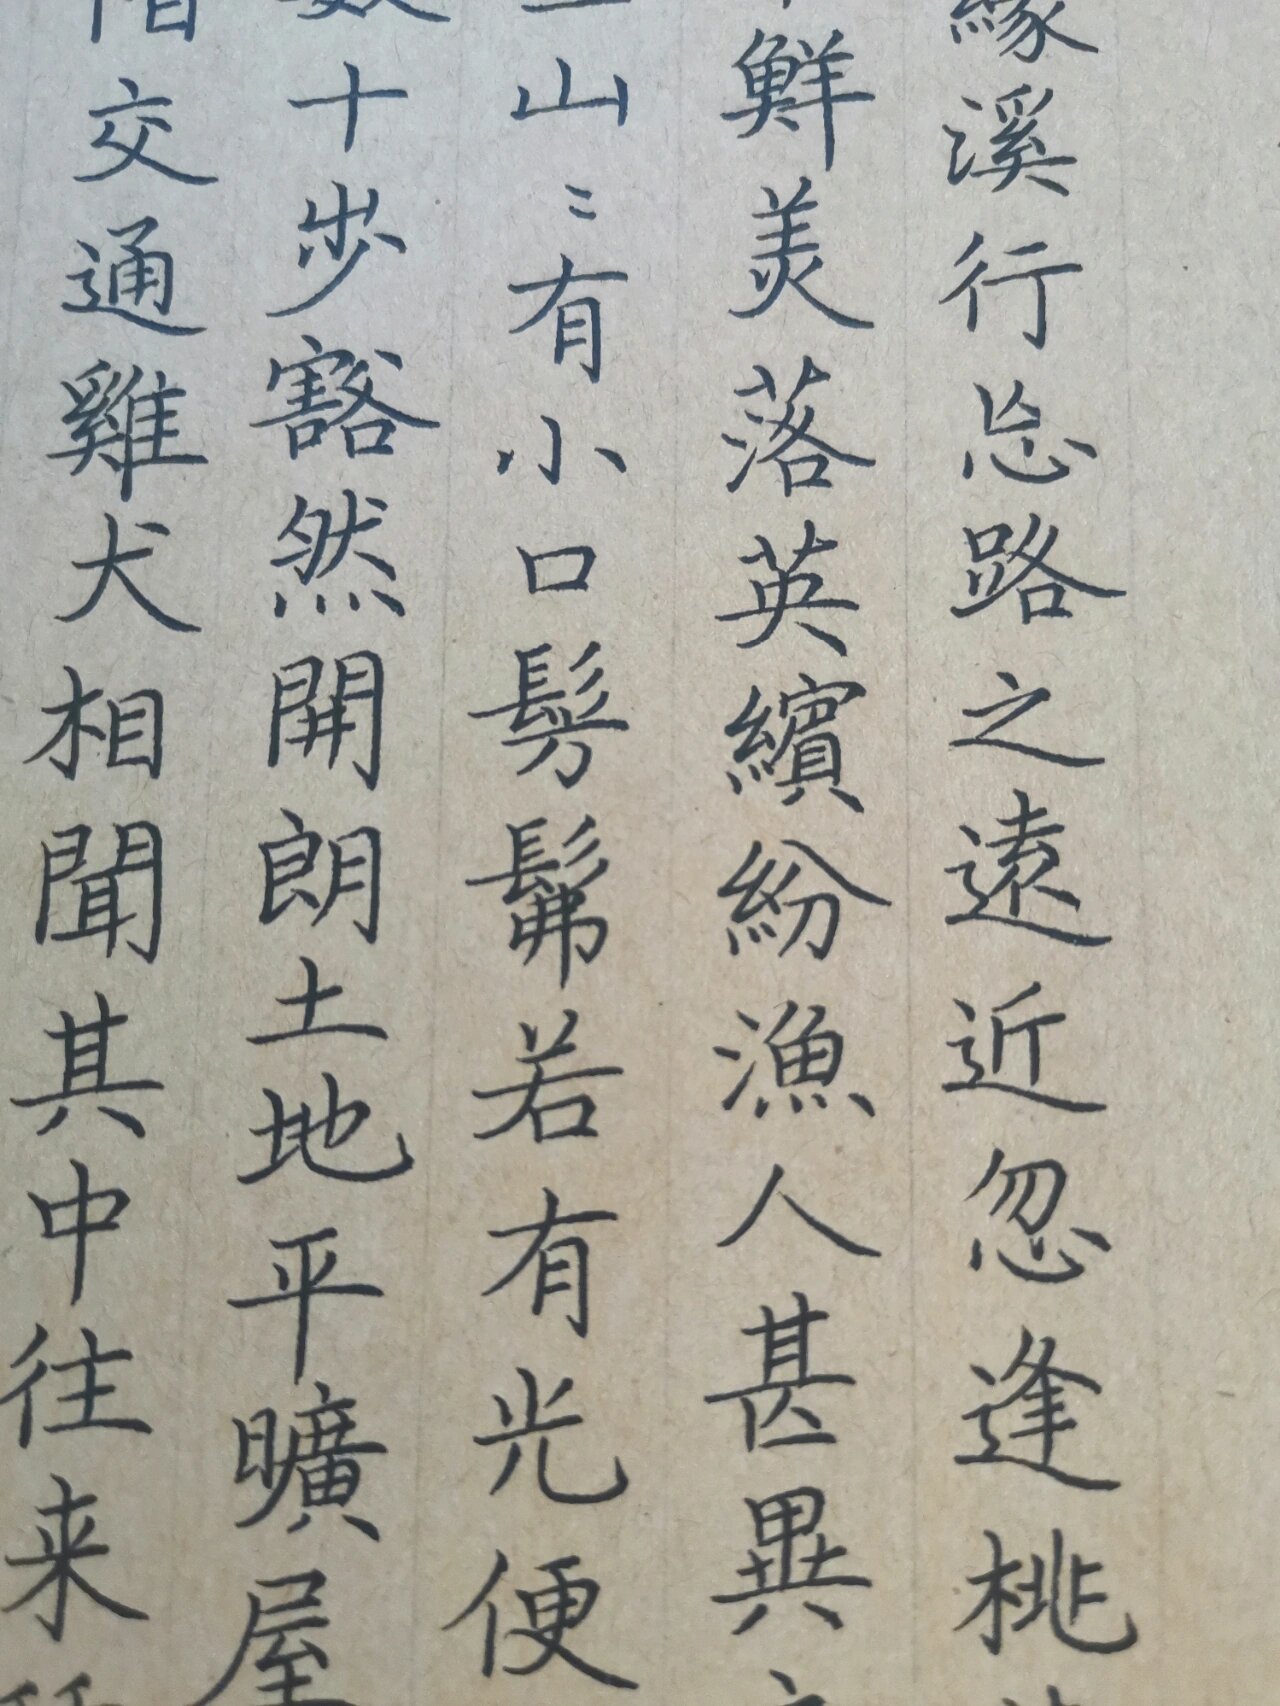 緣溪行忘路之遠近忽逢桃
鮮美落英繽紛漁人甚異
山〻有小口髣髴若有光便
數十步豁然開朗土地平曠屋
交通雞犬相聞其中往来